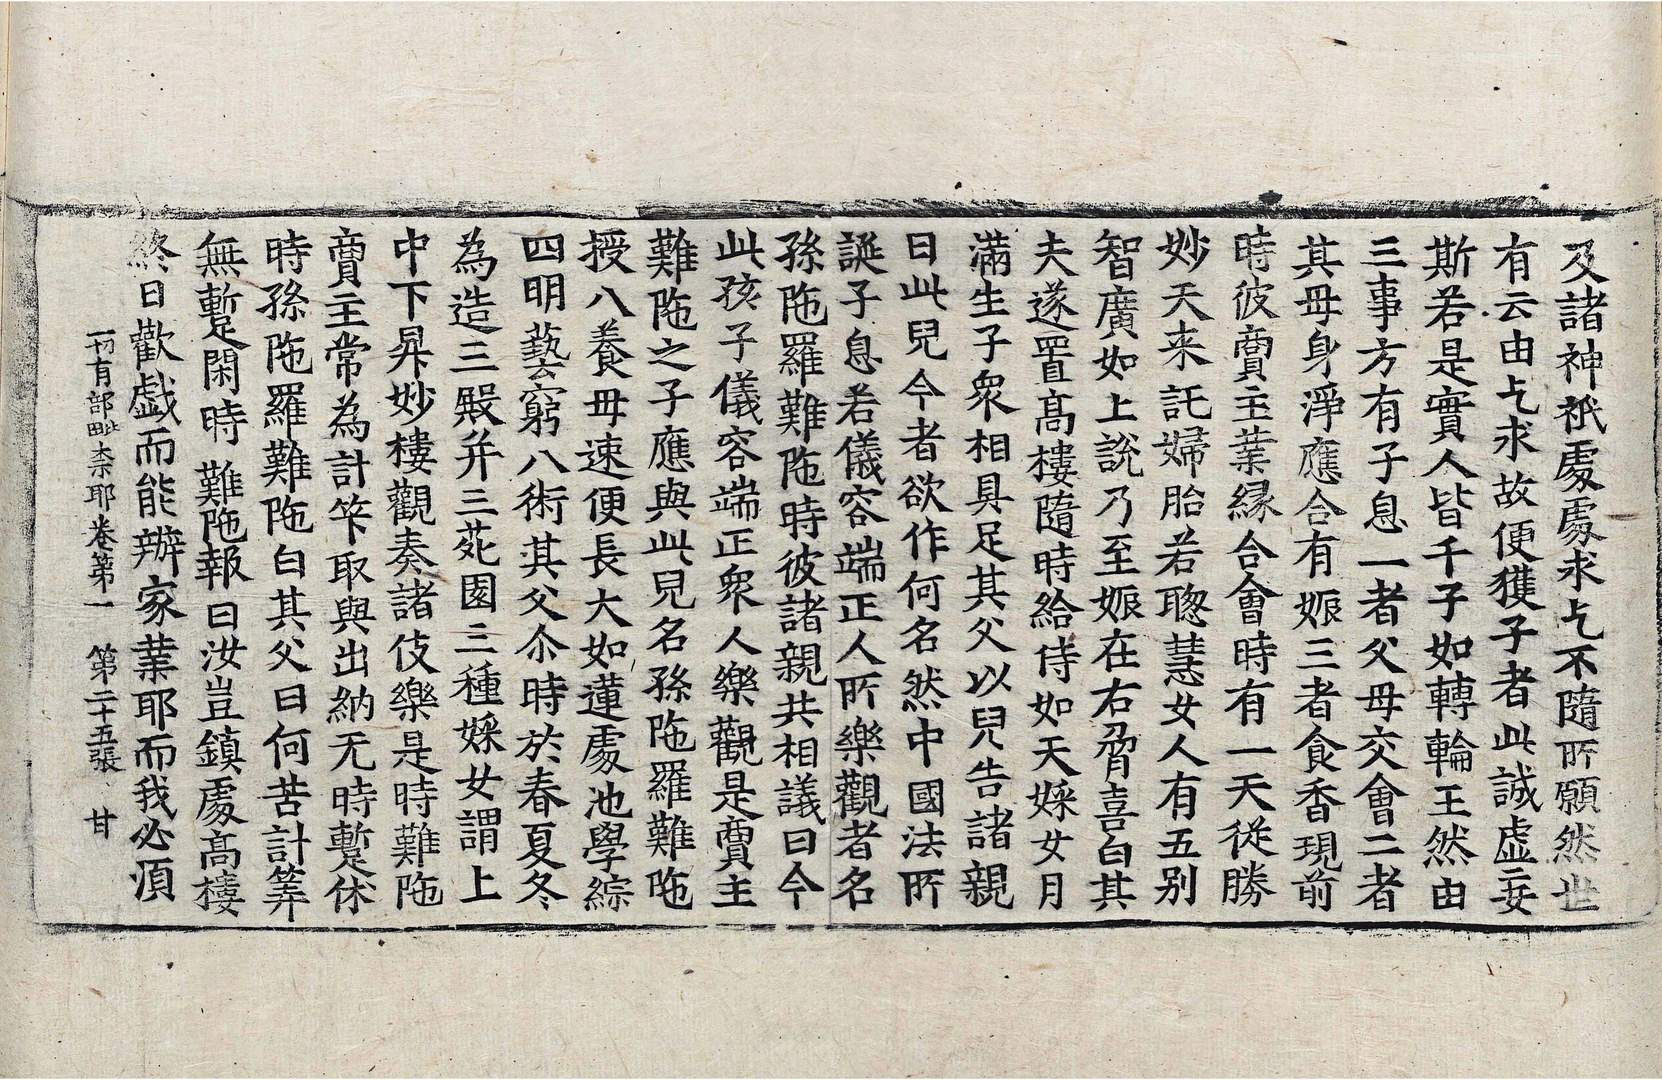 及諸神祇處處求乞不隨所願然世
有云由乞求故便獲子者此誠虛妄
斯若是實人皆千子如轉輪王然由
三事方有子息一者父母交會二者
其母身淨應合有娠三者食香現前
時彼賣主業緣合會時有一天從勝
妙天来託婦胎若聦慧女人有五別
智廣如上說乃至娠在右脅喜白其
夫遂置髙樓隨時給侍如天婇女月
滿生子衆相具足其父以兒告諸親
曰此兒今者欲作何名然中國法所
誕子息若儀容端正人所樂觀者名
孫陁羅難陁時彼諸親共相議曰今
此孩子儀容端正衆人樂觀是賣主
難陁之子應與此兒名孫陁羅難陁
授八養母速便長大如蓮處池學綜
四明藝窮八術其父尒時於春夏冬
為造三殿并三苑園三種婇女謂上
中下昇妙樓觀奏諸伎樂是時難陁
賣主常為計筭取與出納无時蹔休
時孫陁羅難陁白其父曰何苦計筭
無蹔閑時難陁報曰汝豈鎮處髙樓
終日歡戱而能辦家業耶而我必湏
一切有部毗奈耶卷第一　第二十五張　甘